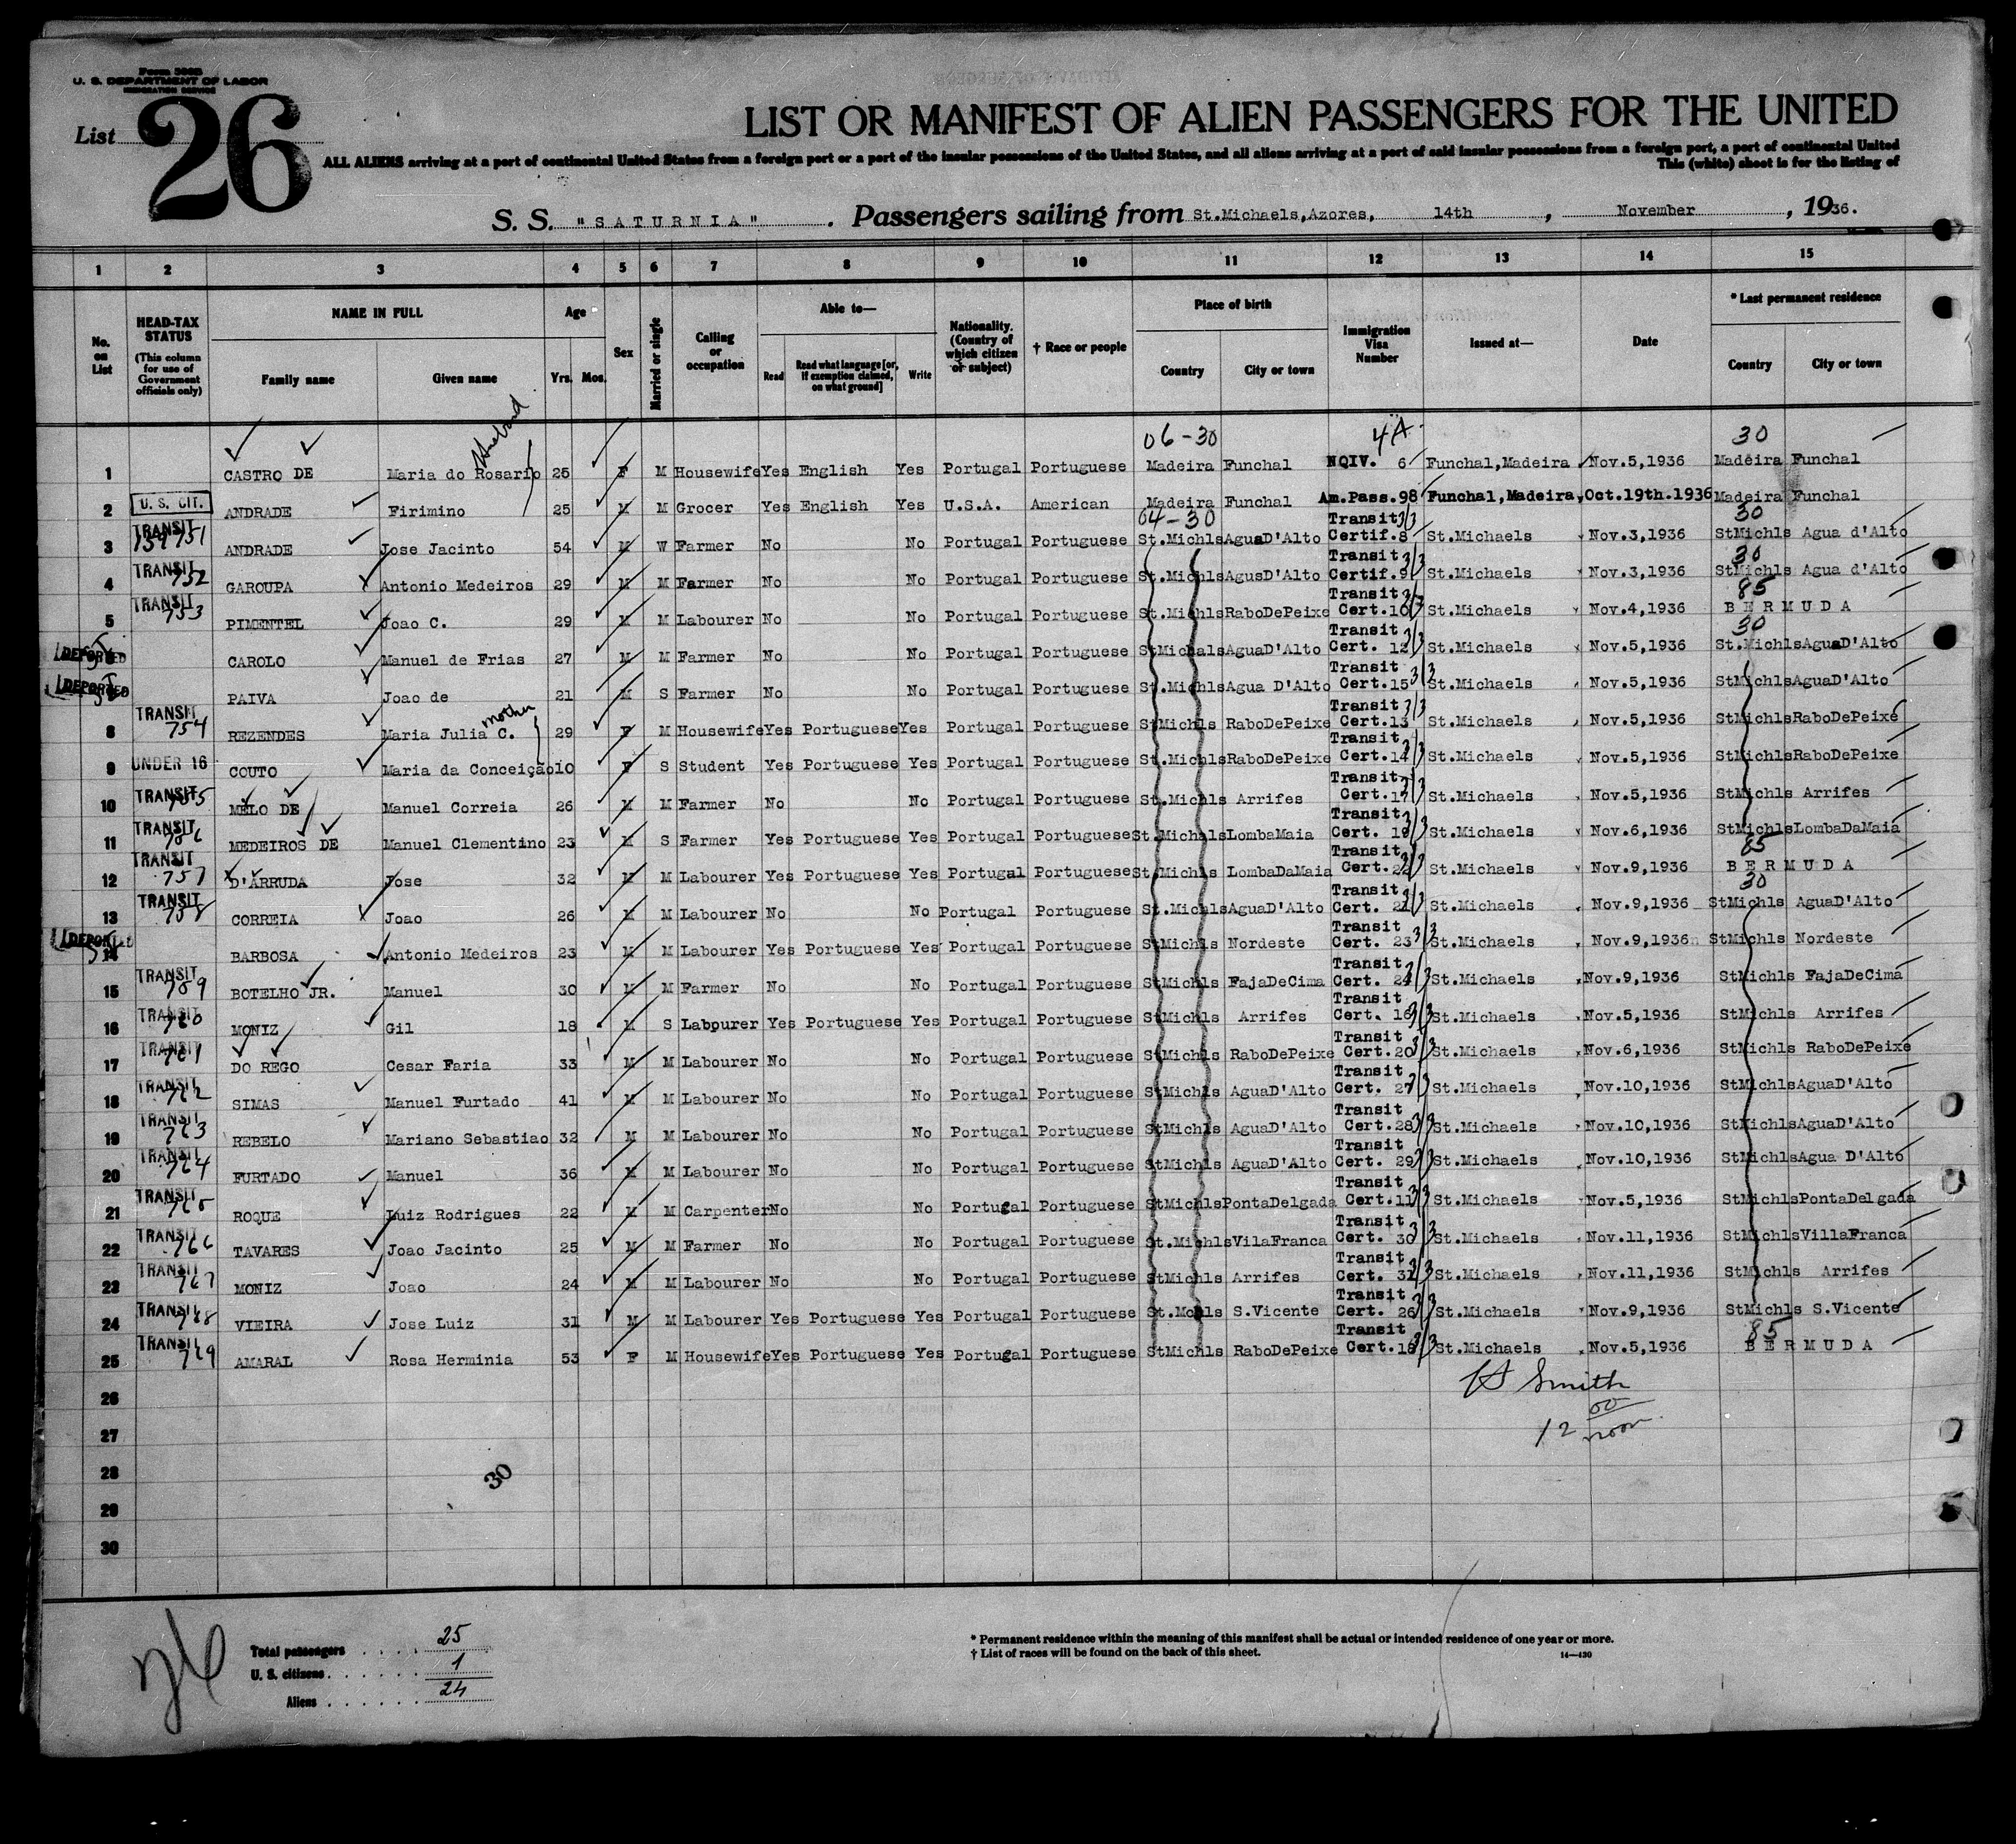 Form 500B
U. S. DEPARTMENT OF LABOR
IMMIGRATION SERVICE
List 26
LIST OR MANIFEST OF ALIEN PASSENGERS FOR THE UNITED
ALL ALIENS arriving at a port of continental United States from a foreign port or a port of the insular possessions of the United States, and all aliens arriving at a port of said insular possessions from a foreign port, a port of continental United
This (white) sheet is for the listing of
S. S. "SATURNIA" . Passengers sailing from St.Michaels,Azores, 14th , November , 1936.
1 2 3 4 5 6 7 8 9 10 11 12 13 14 15
No. on List
HEAD-TAX STATUS (This column for use of Government officials only)
NAME IN FULL Family name Given name
Age Yrs. Mos.
Sex
Married or single
Calling or occupation
Able to— Read Read what language [or, if exemption claimed, on what ground] Write
Nationality. (Country of which citizen or subject)
† Race or people
Place of birth Country City or town
Immigration Visa Number
Issued at—
Date
* Last permanent residence Country City or town
Husband 06-30 4A 30
1 CASTRO DE Maria do Rosario 25 F M Housewife Yes English Yes Portugal Portuguese Madeira Funchal NQIV. 6 Funchal,Madeira Nov.5,1936 Madeira Funchal
2 U. S. CIT. ANDRADE Firimino 25 M M Grocer Yes English Yes U.S.A. American Madeira Funchal Am.Pass.98 Funchal,Madeira, Oct.19th.1936 Madeira Funchal
04-30 30
3 TRANSIT 751 ANDRADE Jose Jacinto 54 M W Farmer No No Portugal Portuguese St.Michls AguaD'Alto Transit Certif.8 3/3 St.Michaels Nov.3,1936 StMichls Agua d'Alto
30
4 TRANSIT 752 GAROUPA Antonio Medeiros 29 M M Farmer No No Portugal Portuguese St.Michls AgusD'Alto Transit Certif.9 3/3 St.Michaels Nov.3,1936 StMichls Agua d'Alto
85
5 TRANSIT 753 PIMENTEL Joao C. 29 M M Labourer No No Portugal Portuguese St.Michls RaboDePeixe Transit Cert.10 3/3 St.Michaels Nov.4,1936 BERMUDA
30
DEPORTED CAROLO Manuel de Frias 27 M M Farmer No No Portugal Portuguese StMichals AguaD'Alto Transit Cert. 12 3/3 St.Michaels Nov.5,1936 St.Michls AguaD'Alto
DEPORTED PAIVA Joao de 21 M S Farmer No No Portugal Portuguese St.Michls Agua D'Alto Transit Cert.15 3/3 St.Michaels Nov.5,1936 StMichls AguaD'Alto
mother
8 TRANSIT 754 REZENDES Maria Julia C. 29 F M Housewife Yes Portuguese Yes Portugal Portuguese StMichls RaboDePeixe Transit Cert.13 3/3 St.Michaels Nov.5,1936 StMichls RaboDePeixe
9 UNDER 16 COUTO Maria da Conceição 10 F S Student Yes Portuguese Yes Portugal Portuguese St.Michls RaboDePeixe Transit Cert.14 3/3 St.Michaels Nov.5,1936 StMichls RaboDePeixe
10 TRANSIT 755 MELO DE Manuel Correia 26 M M Farmer No No Portugal Portuguese St.Michls Arrifes Transit Cert.17 3/3 St.Michaels Nov.5,1936 StMichls Arrifes
11 TRANSIT 756 MEDEIROS DE Manuel Clementino 23 M S Farmer Yes Portuguese Yes Portugal Portuguese St.Michals LombaMaia Transit Cert. 19 3/3 St.Michaels Nov.6,1936 StMichls LombaDaMaia
85
12 TRANSIT 757 D'ARRUDA Jose 32 M M Labourer Yes Portuguese Yes Portugal Portuguese St.Michls LombaDaMaia Transit Cert.22 3/3 St.Michaels Nov.9,1936 BERMUDA
30
13 TRANSIT 758 CORREIA Joao 26 M M Labourer No No Portugal Portuguese St.Michls AguaD'Alto Transit Cert. 21 3/3 St.Michaels Nov.9,1936 StMichls AguaD'Alto
DEPORTED 14 BARBOSA Antonio Medeiros 23 M M Labourer Yes Portuguese Yes Portugal Portuguese StMichls Nordeste Transit Cert. 23 3/3 St.Michaels Nov.9,1936 StMichls Nordeste
15 TRANSIT 759 BOTELHO JR. Manuel 30 M M Farmer No No Portugal Portuguese StMichls FajaDeCima Transit Cert. 24 3/3 St.Michaels Nov.9,1936 StMichls FajaDeCima
16 TRANSIT 760 MONIZ Gil 18 M S Labourer Yes Portuguese Yes Portugal Portuguese StMichls Arrifes Transit Cert. 16 3/3 St.Michaels Nov.5,1936 StMichls Arrifes
17 TRANSIT 761 DO REGO Cesar Faria 33 M M Labourer No No Portugal Portuguese StMichls RaboDePeixe Transit Cert.20 3/3 St.Michaels Nov.6,1936 StMichls RaboDePeixe
18 TRANSIT 762 SIMAS Manuel Furtado 41 M M Labourer No No Portugal Portuguese StMichls AguaD'Alto Transit Cert. 27 3/3 St.Michaels Nov.10,1936 StMichls AguaD'Alto
19 TRANSIT 763 REBELO Mariano Sebastiao 32 M M Labourer No No Portugal Portuguese StMichls AguaD'Alto Transit Cert.28 3/3 St.Michaels Nov.10,1936 StMichls AguaD'Alto
20 TRANSIT 764 FURTADO Manuel 36 M M Labourer No No Portugal Portuguese StMichls AguaD'Alto Transit Cert. 29 3/3 St.Michaels Nov.10,1936 StMichls Agua D'Alto
21 TRANSIT 765 ROQUE Luiz Rodrigues 22 M M Carpenter No No Portugal Portuguese StMichls PontaDelgada Transit Cert.11 3/3 St.Michaels Nov.5,1936 StMichls PontaDelgada
22 TRANSIT 766 TAVARES Joao Jacinto 25 M M Farmer No No Portugal Portuguese St.Michls VilaFranca Transit Cert. 30 3/3 St.Michaels Nov.11,1936 StMichls VillaFranca
23 TRANSIT 767 MONIZ Joao 24 M M Labourer No No Portugal Portuguese StMichls Arrifes Transit Cert. 31 3/3 St.Michaels Nov.11,1936 StMichls Arrifes
24 TRANSIT 768 VIEIRA Jose Luiz 31 M M Labourer Yes Portuguese Yes Portugal Portuguese St.Mchls S.Vicente Transit Cert. 26 3/3 St.Michaels Nov.9,1936 StMichls S.Vicente
85
25 TRANSIT 769 AMARAL Rosa Herminia 53 F M Housewife Yes Portuguese Yes Portugal Portuguese StMichls RaboDePeixe Transit Cert.18 3/3 St.Michaels Nov.5,1936 BERMUDA
26 Smith
27 12 00 noon
28 30
29
30
26
Total passengers . . . . 25
U. S. citizens . . . . . . 1
Aliens . . . . . . 24
* Permanent residence within the meaning of this manifest shall be actual or intended residence of one year or more.
† List of races will be found on the back of this sheet. 14—430